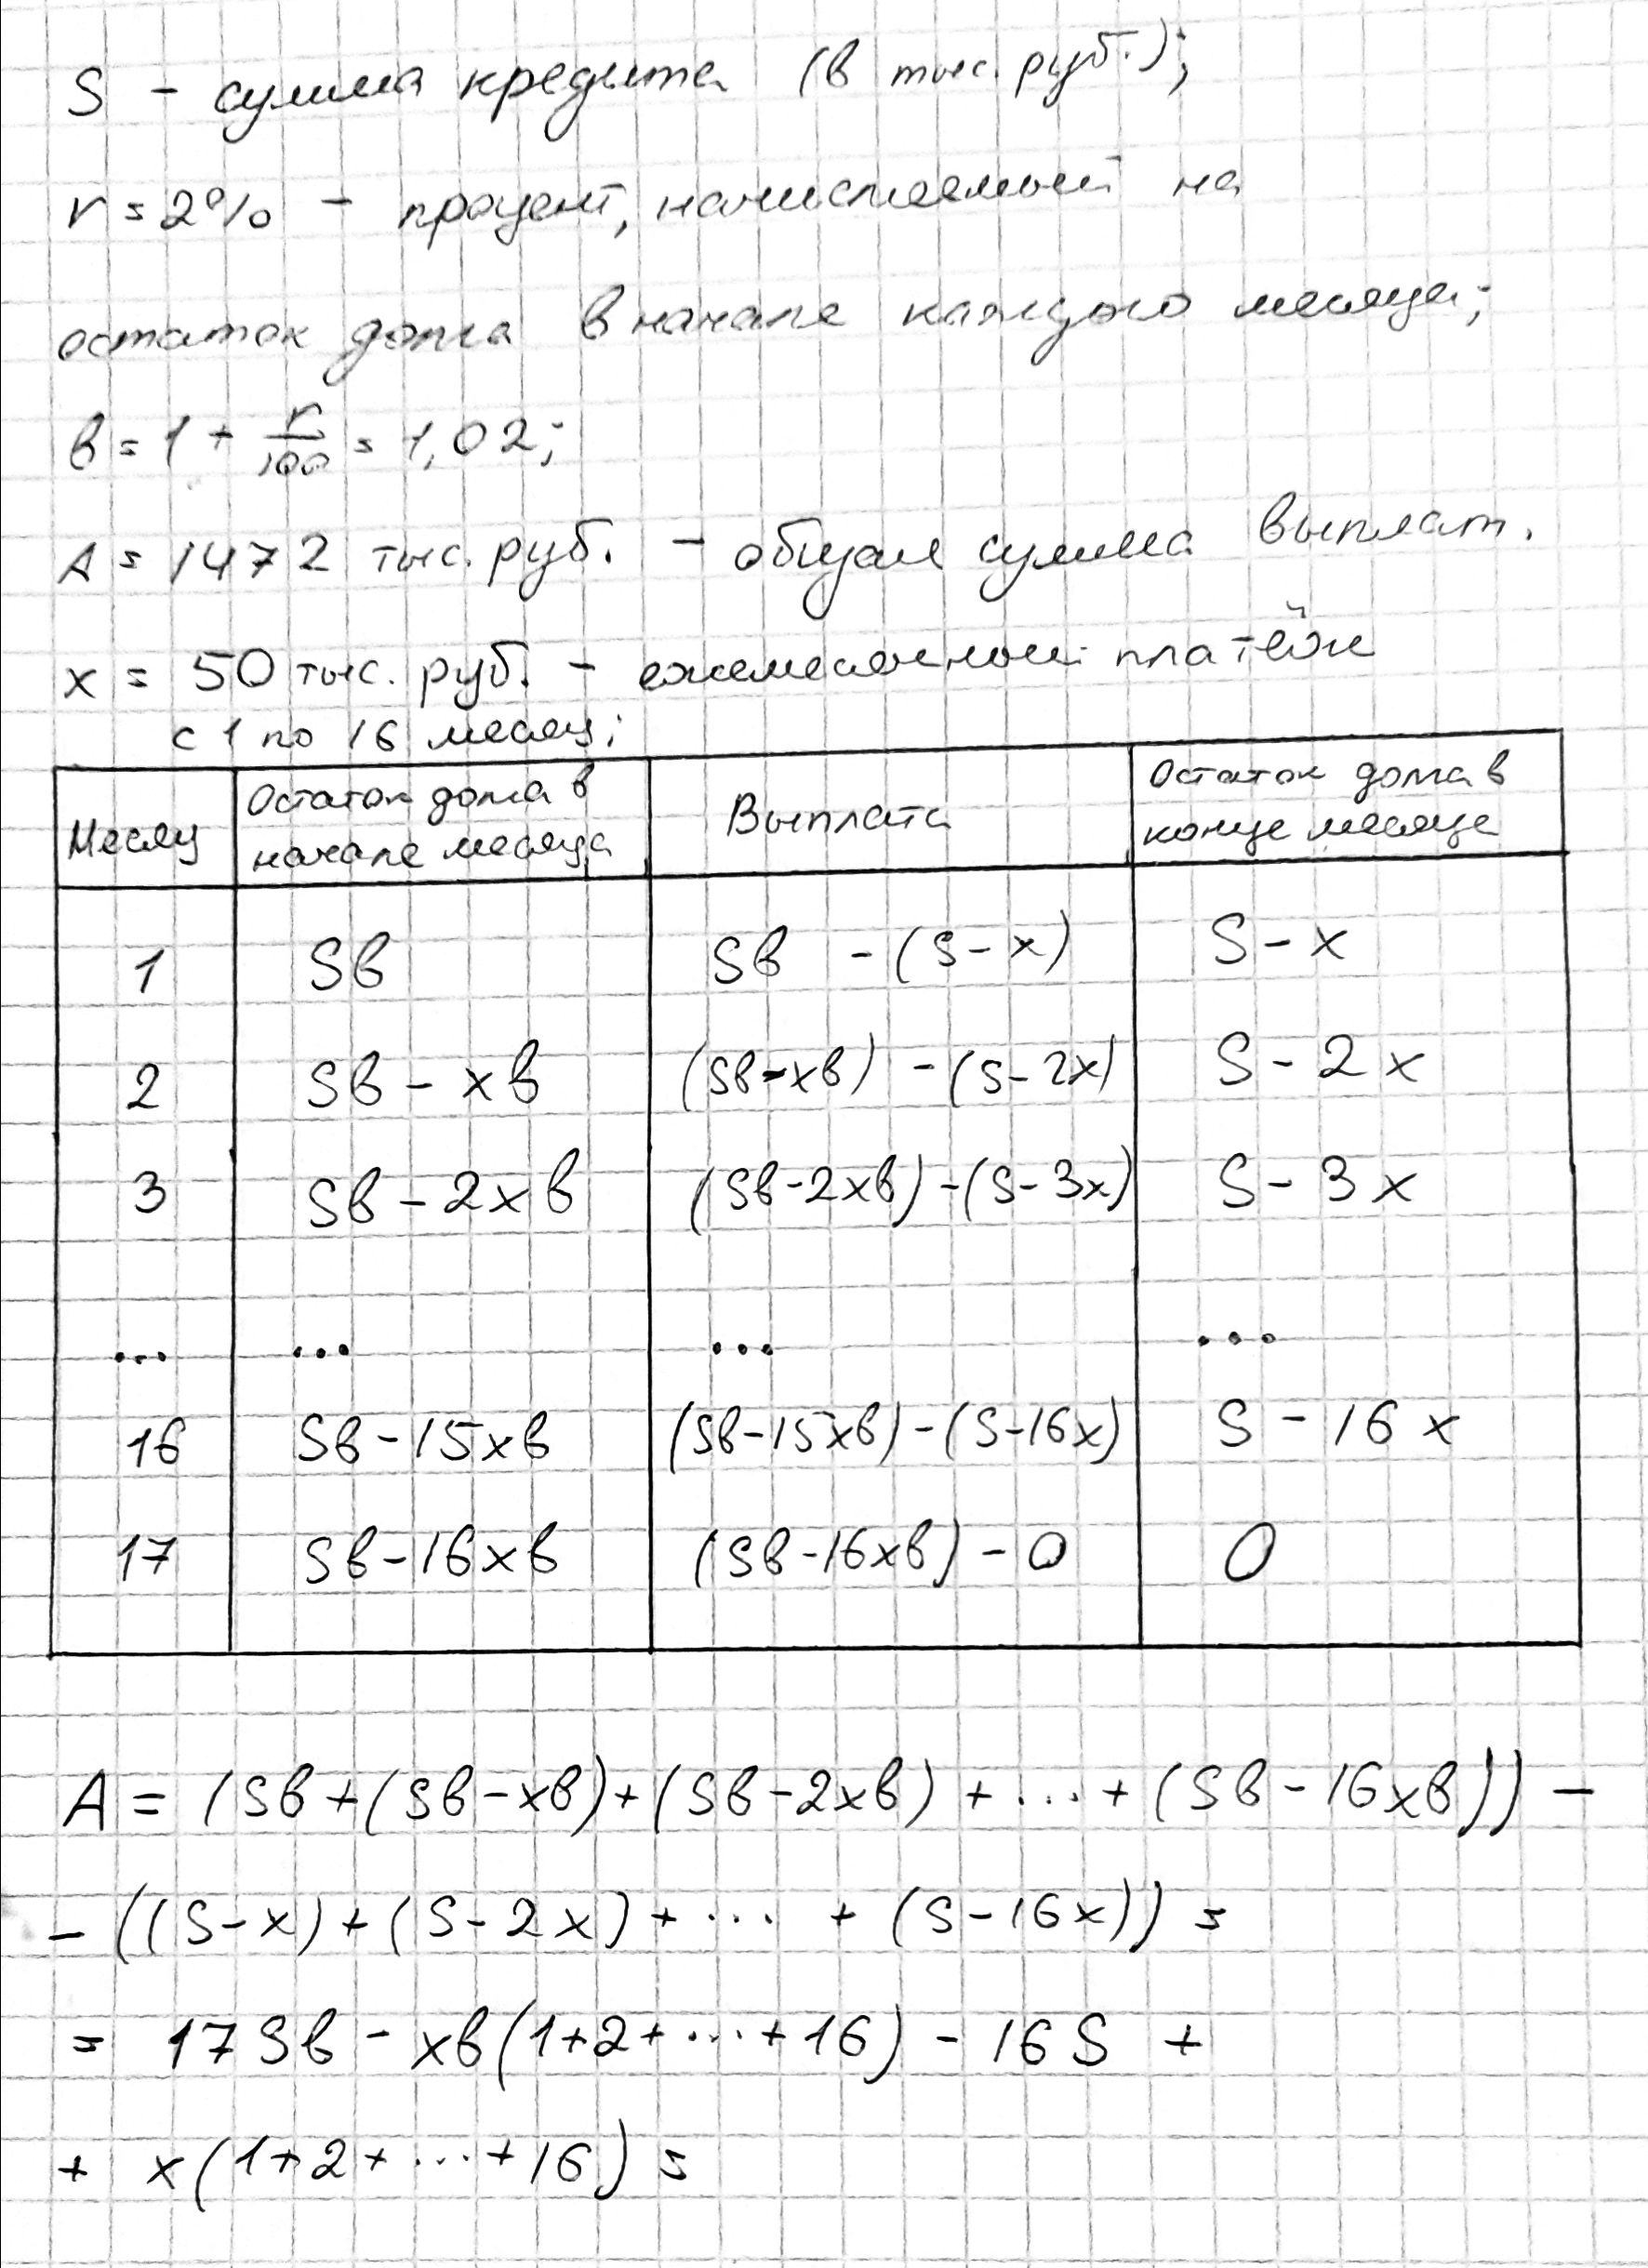 S - сумма кредита (в тыс. руб.);
r = 2% - процент, начисляемый на
остаток долга в начале каждого месяца;
b = 1 + r/100 = 1,02;
A = 1472 тыс. руб. - общая сумма выплат.
x = 50 тыс. руб. - ежемесячный платёж
с 1 по 16 месяц;
Месяц | Остаток долга в начале месяца | Выплата | Остаток долга в конце месяца
1 | Sb | Sb - (S-x) | S-x
2 | Sb - xb | (Sb-xb) - (S-2x) | S - 2x
3 | Sb - 2xb | (Sb-2xb) - (S-3x) | S - 3x
... | ... | ... | ...
16 | Sb - 15xb | (Sb-15xb) - (S-16x) | S - 16x
17 | Sb - 16xb | (Sb-16xb) - 0 | 0
A = (Sb + (Sb-xb) + (Sb-2xb) + ... + (Sb-16xb)) -
- ((S-x) + (S-2x) + ... + (S-16x)) =
= 17Sb - xb(1+2+...+16) - 16S +
+ x(1+2+...+16) =